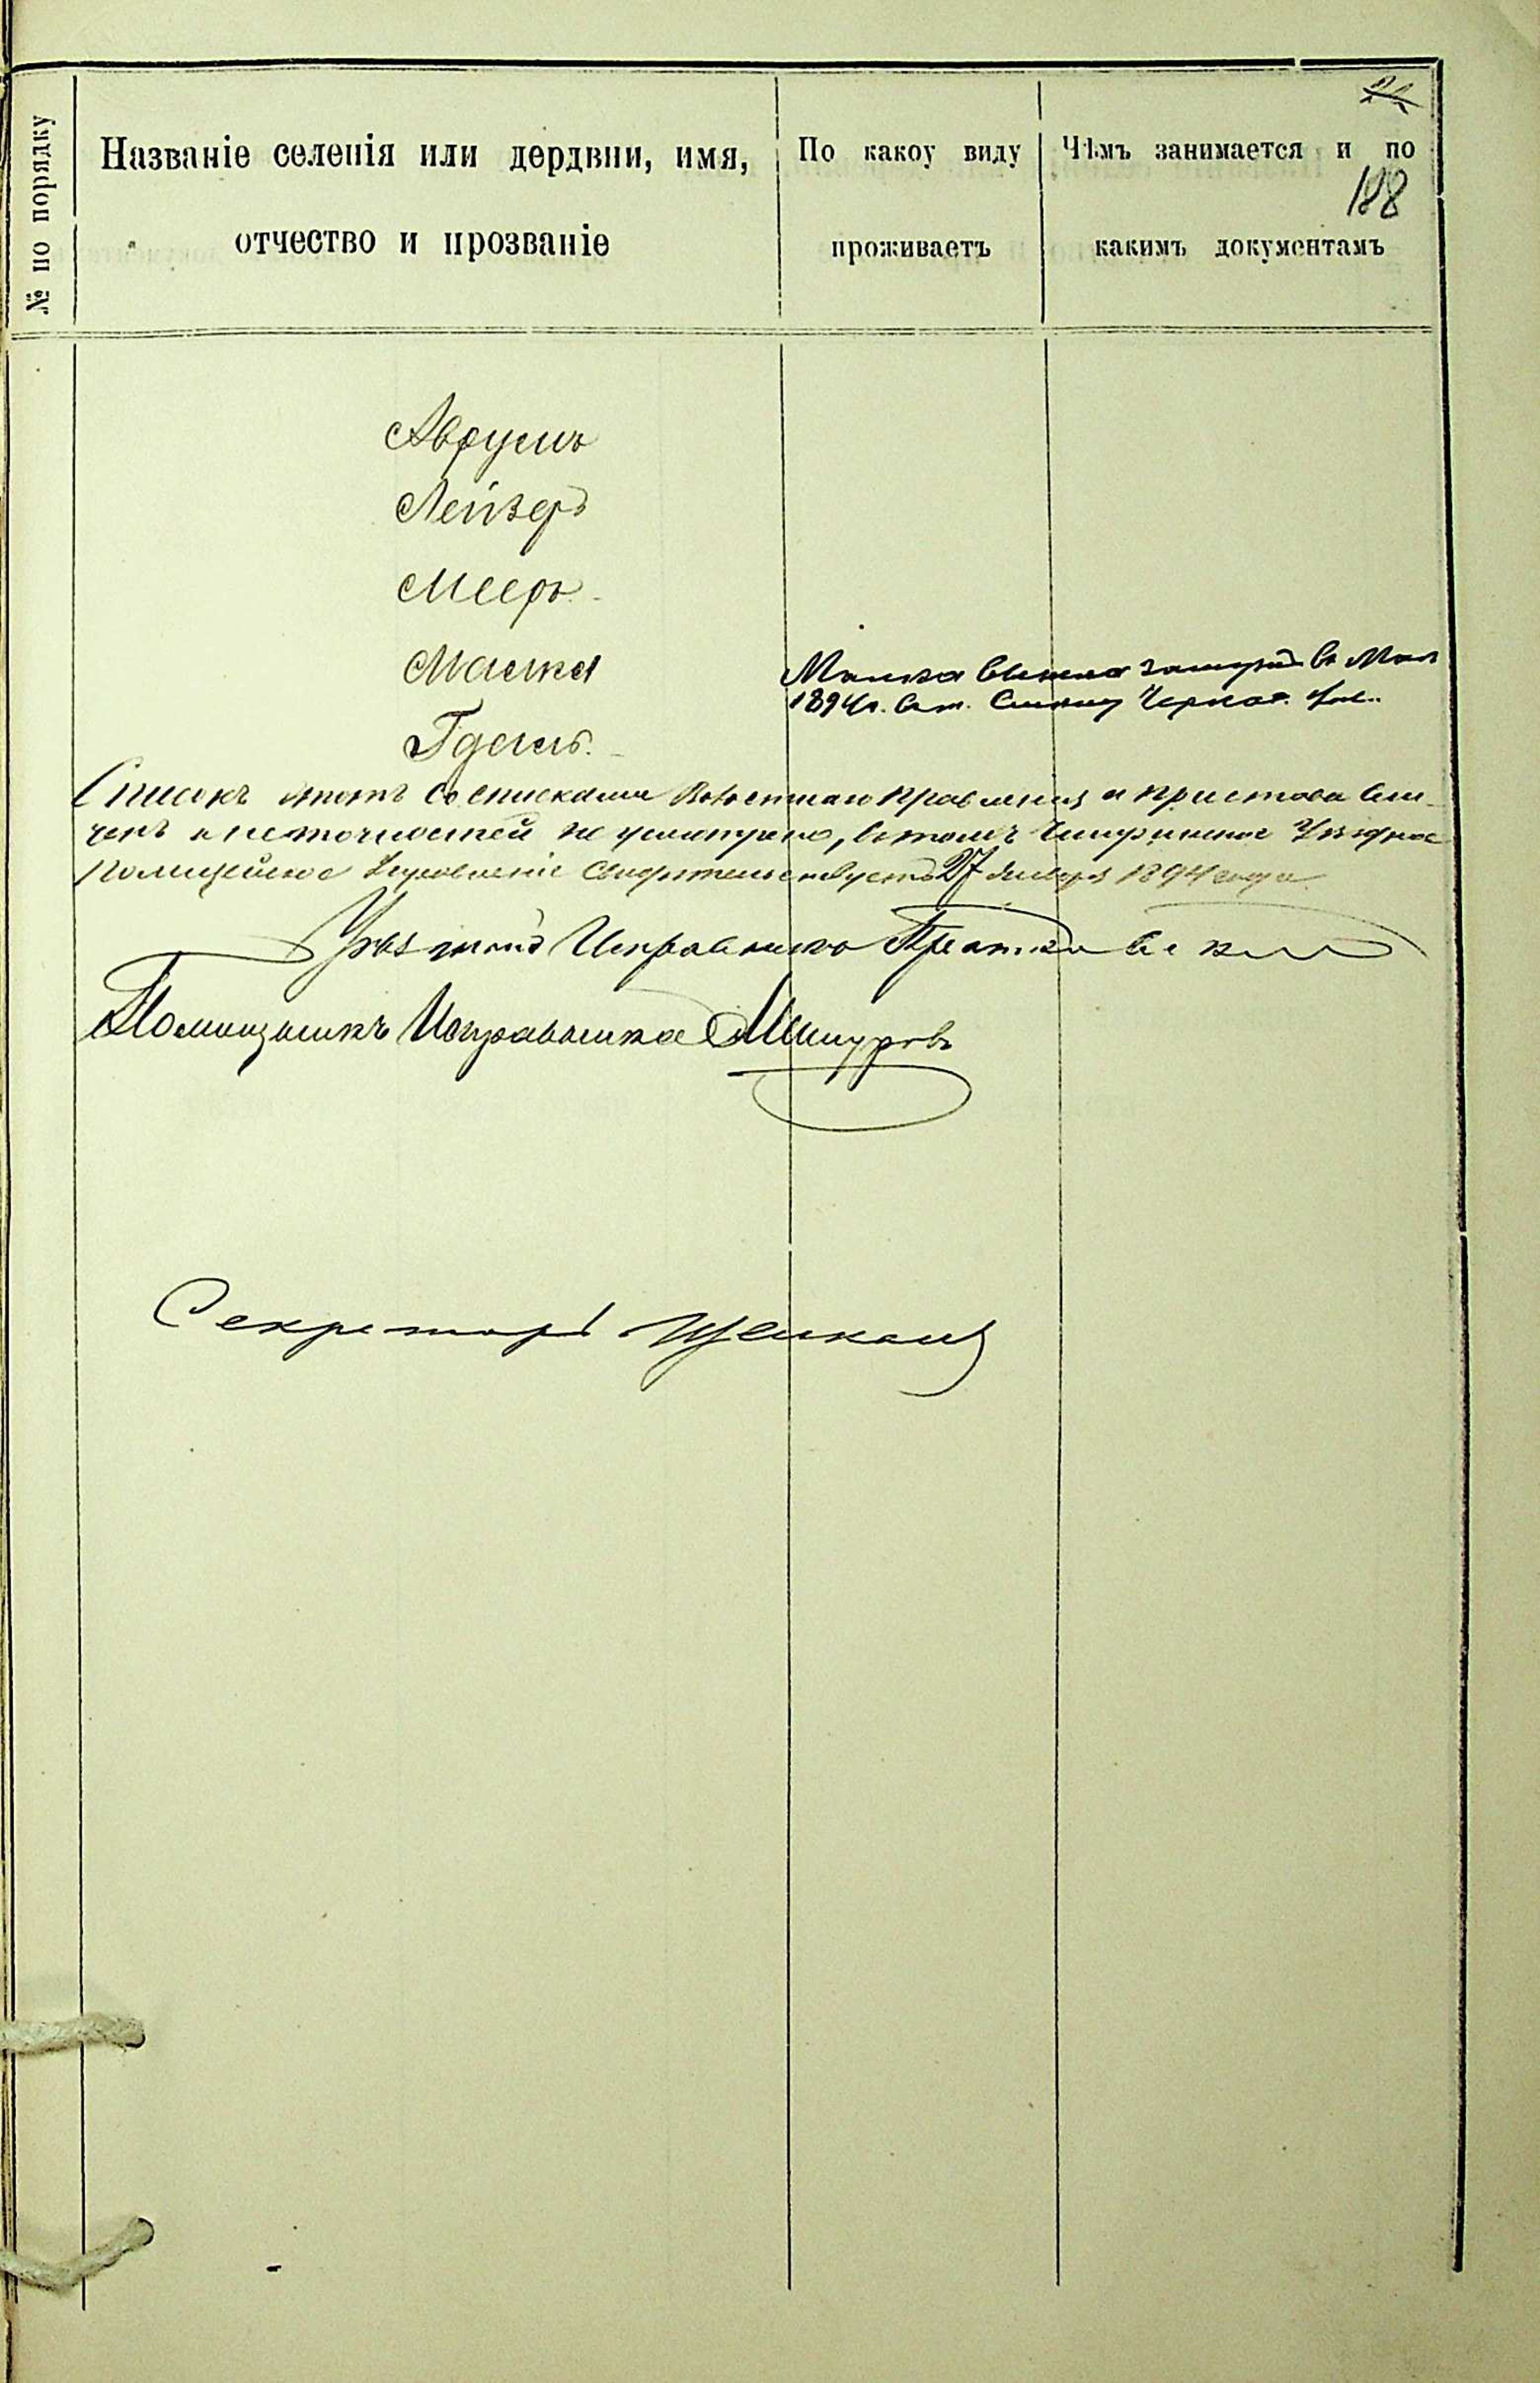 № по порядку
Названіе селенія или дердвни, имя,
отчество и прозваніе
По какоу виду
проживаетъ
Чѣмъ занимается и по
какимъ документамъ
188
Аврумъ
Лейзеръ
Мееръ
Малка
Малка вышла замужъ въ
1894 г. въ м. Смѣлу Черкас.
Гдаль.
Списокъ этотъ со списками Волостнаго Правленія и Пристава сли-
ченъ и неточностей не усмотрено, въ томъ Чигиринское Уѣздное
Полицейское Управленіе свидѣтельствуетъ 27 Января 1894 года.
Уѣздный Исправникъ
Помощникъ Исправника
Секретарь